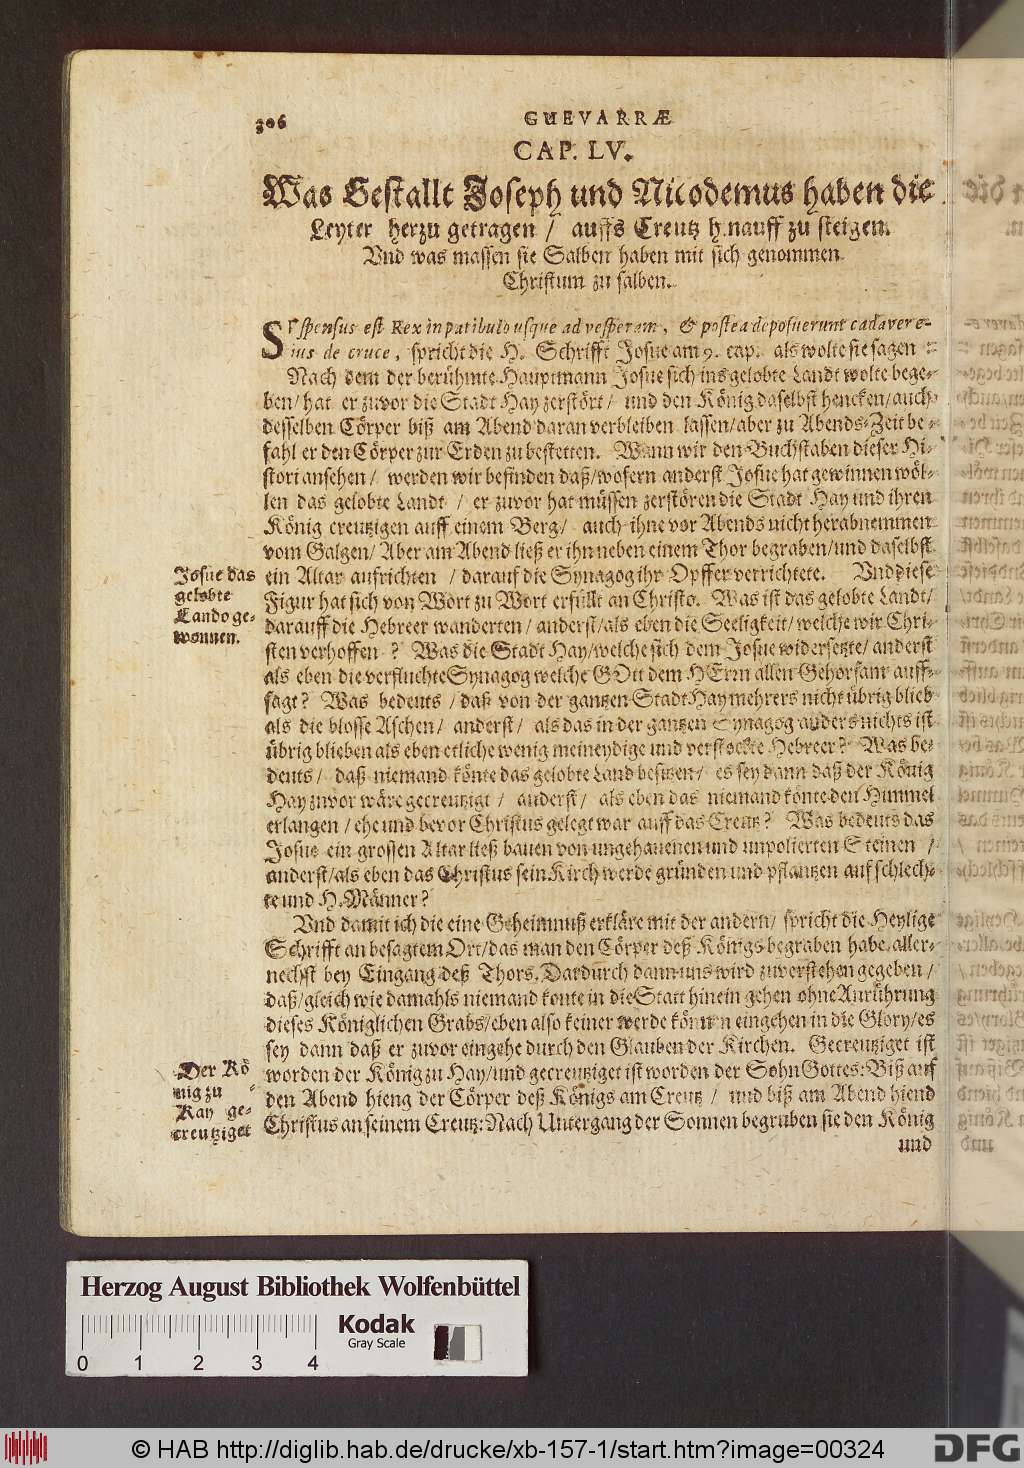 306
GUEVARRÆ
CAP. LV.
Was Gestallt Joseph und Nicodemus haben die
Leyter herzu getragen / auffs Creutz h nauff zu steigen.
Vnd was massen sie Salben haben mit sich genommen
Christum zu salben.
SVspensus est Rex in patibulo usque ad vesperam, & postea deposuerunt cadaver e-
ius de cruce, spricht die H. Schrifft Josue am 9. cap. als wolte sie sagen:
Nach dem der berühmte Hauptmann Josue sich ins gelobte Landt wolte bege-
ben/ hat er zuvor die Stadt Hay zerstört/ und den König daselbst hencken/ auch
desselben Cörper biß am Abend daran verbleiben lassen/ aber zu Abends-Zeit be-
fahl er den Cörper zur Erden zu bestetten. Wann wir den Buchstaben dieser Hi-
stori ansehen/ werden wir befinden daß/ wofern anderst Josue hat gewinnen wöl-
len das gelobte Landt / er zuvor hat müssen zerstören die Stadt Hay und ihren
König creutzigen auff einem Berg/ auch ihne vor Abends nicht herabnemmen
vom Galgen/ Aber am Abend ließ er ihn neben einem Thor begraben/ und daselbst
ein Altar aufrichten / darauf die Synagog ihr Opffer verrichtete. Vnd diese
Figur hat sich von Wort zu Wort erfüllt an Christo. Was ist das gelobte Landt/
darauff die Hebreer wanderten/ anderst/ als eben die Seeligkeit/ welche wir Chri-
sten verhoffen ? Was die Stadt Hay/ welche sich dem Josue widersetzte/ anderst
als eben die verfluchte Synagog welche GOtt dem HErrn allen Gehorsam auff-
sagt? Was bedeuts / daß von der gantzen Stadt Hay mehrers nicht übrig blieb
als die blosse Aschen/ anderst/ als das in der gantzen Synagog anders nichts ist
übrig blieben als eben etliche wenig meineydige und verstockte Hebreer? Was be-
deuts/ daß niemand könte das gelobte Land besitzen/ es sey dann daß der König
Hay zuvor wäre gecreutzigt / anderst/ als eben das niemand könte den Himmel
erlangen / ehe und bevor Christus gelegt war auff das Creutz? Was bedeuts das
Josue ein grossen Altar ließ bauen von ungehauenen und unpolierten Steinen /
anderst/ als eben das Christus sein Kirch werde gründen und pflantzen auf schlech-
te und H. Männer?
Vnd damit ich die eine Geheimnuß erkläre mit der andern/ spricht die Heylige
Schrifft an besagtem Ort/ das man den Cörper deß Königs begraben habe aller-
nechst bey Eingang deß Thors. Dardurch dann uns wird zuverstehen gegeben/
daß/ gleich wie damahls niemand konte in die Statt hinein gehen ohne Anrührung
dieses Königlichen Grabs/ eben also keiner werde können eingehen in die Glory/ es
sey dann daß er zuvor eingehe durch den Glauben der Kirchen. Gecreutziget ist
worden der König zu Hay/ und gecreutziget ist worden der Sohn Gottes: Biß auf
den Abend hieng der Cörper deß Königs am Creutz / und biß am Abend hiend
Christus an seinem Creutz: Nach Untergang der Sonnen begruben sie den König
und
Josue das
gelobte
Lando ge-
wonnen.
Der Kö
nig zu
Kay ge-
creutziget
Herzog August Bibliothek Wolfenbüttel
Kodak
Gray Scale
0 1 2 3 4
© HAB http://diglib.hab.de/drucke/xb-157-1/start.htm?image=00324
DFG